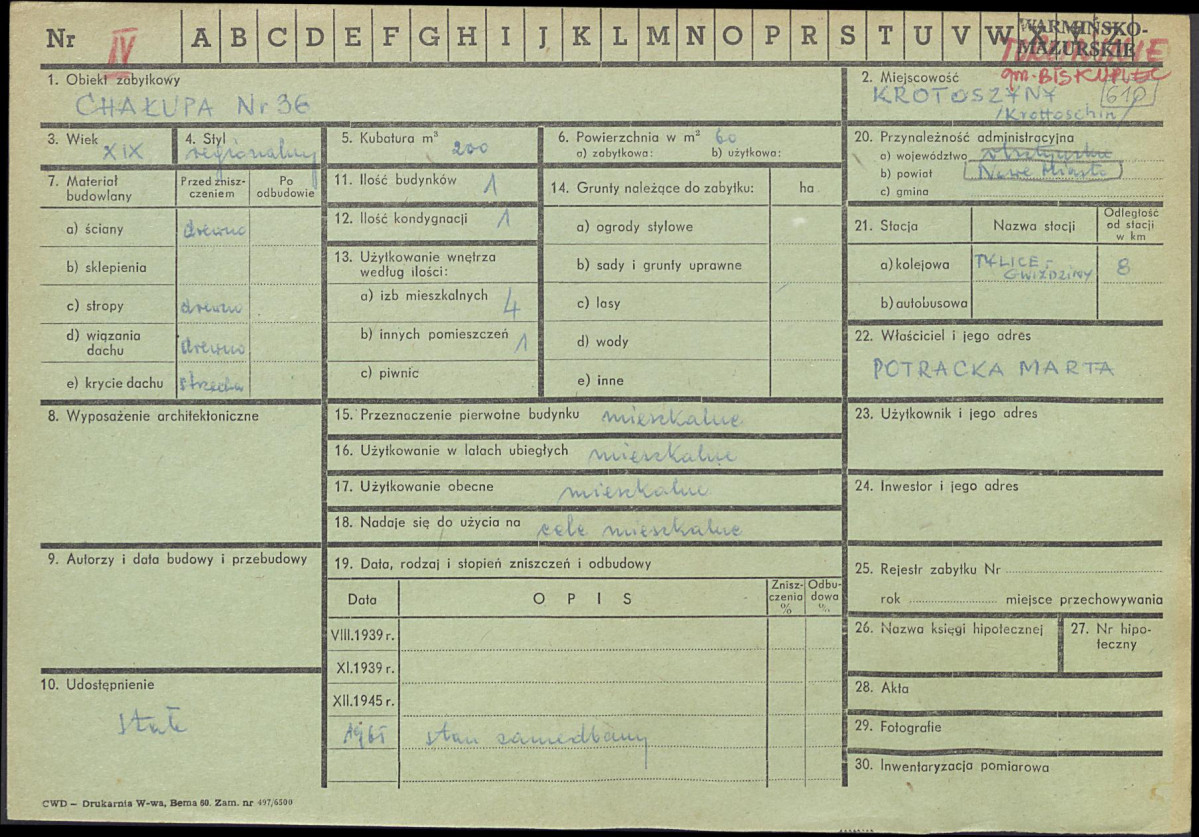 Nr IV A B C D E F G H I J K L M N O P R S T U V W X Y Z WARMIŃSKO-
MAZURSKIE
gm. BISKUPIEC
1. Obiekt zabytkowy
CHAŁUPA Nr 36
2. Miejscowość
KROTOSZYNY 610
/Krottoschin/
3. Wiek XIX
4. Styl regionalny
5. Kubatura m³ 200
6. Powierzchnia w m² 60
a) zabytkowa: b) użytkowa:
7. Materiał budowlany
Przed znisz-
czeniem
Po
odbudowie
a) ściany drewno
b) sklepienia
c) stropy drewno
d) wiązania
dachu drewno
e) krycie dachu strzecha
8. Wyposażenie architektoniczne
9. Autorzy i data budowy i przebudowy
10. Udostępnienie
11. Ilość budynków 1
12. Ilość kondygnacji 1
13. Użytkowanie wnętrza
według ilości:
a) izb mieszkalnych 4
b) innych pomieszczeń 1
c) piwnic
14. Grunty należące do zabytku: ha
a) ogrody stylowe
b) sady i grunty uprawne
c) lasy
d) wody
e) inne
15. Przeznaczenie pierwotne budynku mieszkalne
16. Użytkowanie w latach ubiegłych mieszkalne
17. Użytkowanie obecne mieszkalne
18. Nadaje się do użycia na cele mieszkalne
19. Data, rodzaj i stopień zniszczeń i odbudowy
Data O P I S
Znisz-
czenia
%
Odbu-
dowa
%
VIII.1939 r.
XI.1939 r.
XII.1945 r.
stan zaniedbany
20. Przynależność administracyjna
a) województwo olsztyńskie
b) powiat Nowe Miasto
c) gmina
21. Stacja Nazwa stacji
Odległość
od stacji
w km
a) kolejowa TYLICE-
GWIŹDZINY 8
b) autobusowa
22. Właściciel i jego adres
POTRACKA MARTA
23. Użytkownik i jego adres
24. Inwestor i jego adres
25. Rejestr zabytku Nr
rok miejsce przechowywania
26. Nazwa księgi hipotecznej
27. Nr hipo-
teczny
28. Akta
29. Fotografie
30. Inwentaryzacja pomiarowa
CWD – Drukarnia W-wa, Bema 60. Zam. nr 497/6500